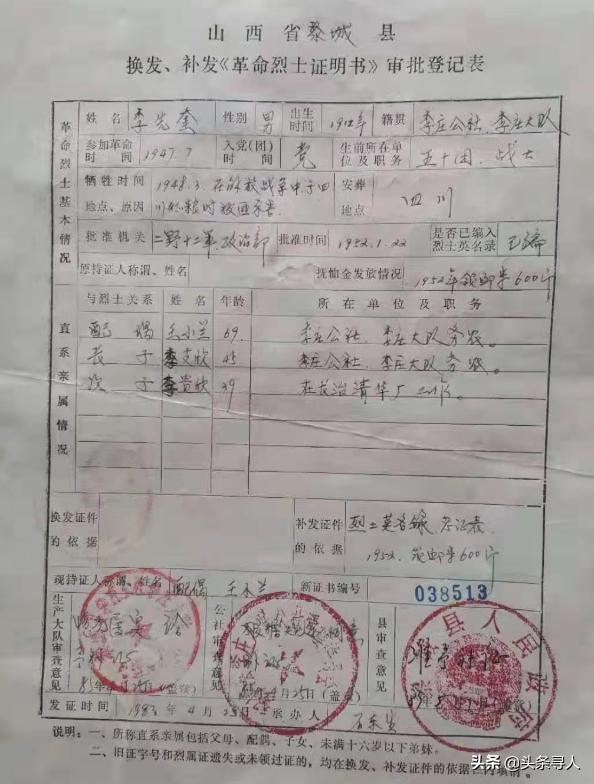 山西省黎城县
换发、补发《革命烈士证明书》审批登记表
革命烈士基本情况
姓名 李先奎 性别 男 出生时间 1912年 籍贯 李庄公社、李庄大队
参加革命时间 1947.7 入党(团)时间 党 生前所在单位及职务 五十团、战士
牺牲时间地点、原因 1948.3. 在解放战争中于四川 时被 害 安葬地点 四川
批准机关 二野十二军政治部 批准时间 1952.1.22 是否已编入烈士英名录 已编
原持证人称谓、姓名 抚恤金发放情况 1952年领邮米600斤
直系亲属情况
与烈士关系 姓名 年龄 所在单位及职务
配偶 王小兰 69. 李庄公社、李庄大队务农。
长子 李 欣 45 李庄公社、李庄大队务农。
次子 李贵欣 39 在长治清华厂工作。
换发证件的依据 补发证件的依据 烈士英名录 存证表
1952. 领邮米600斤
现持证人称谓、姓名 配偶 王小兰 新证书编号 038513
生产大队审查意见 公社审查意见 县审查意见
4月25日(盖章)
县人民政府
发证时间 1983年4月28日 承办人
说明:一、所称直系亲属包括父母、配偶、子女、未满十六岁以下弟妹。
二、旧证字号和烈属证遗失或未领过证的,均在换发、补发证件的依据 填写。
头条@头条寻人